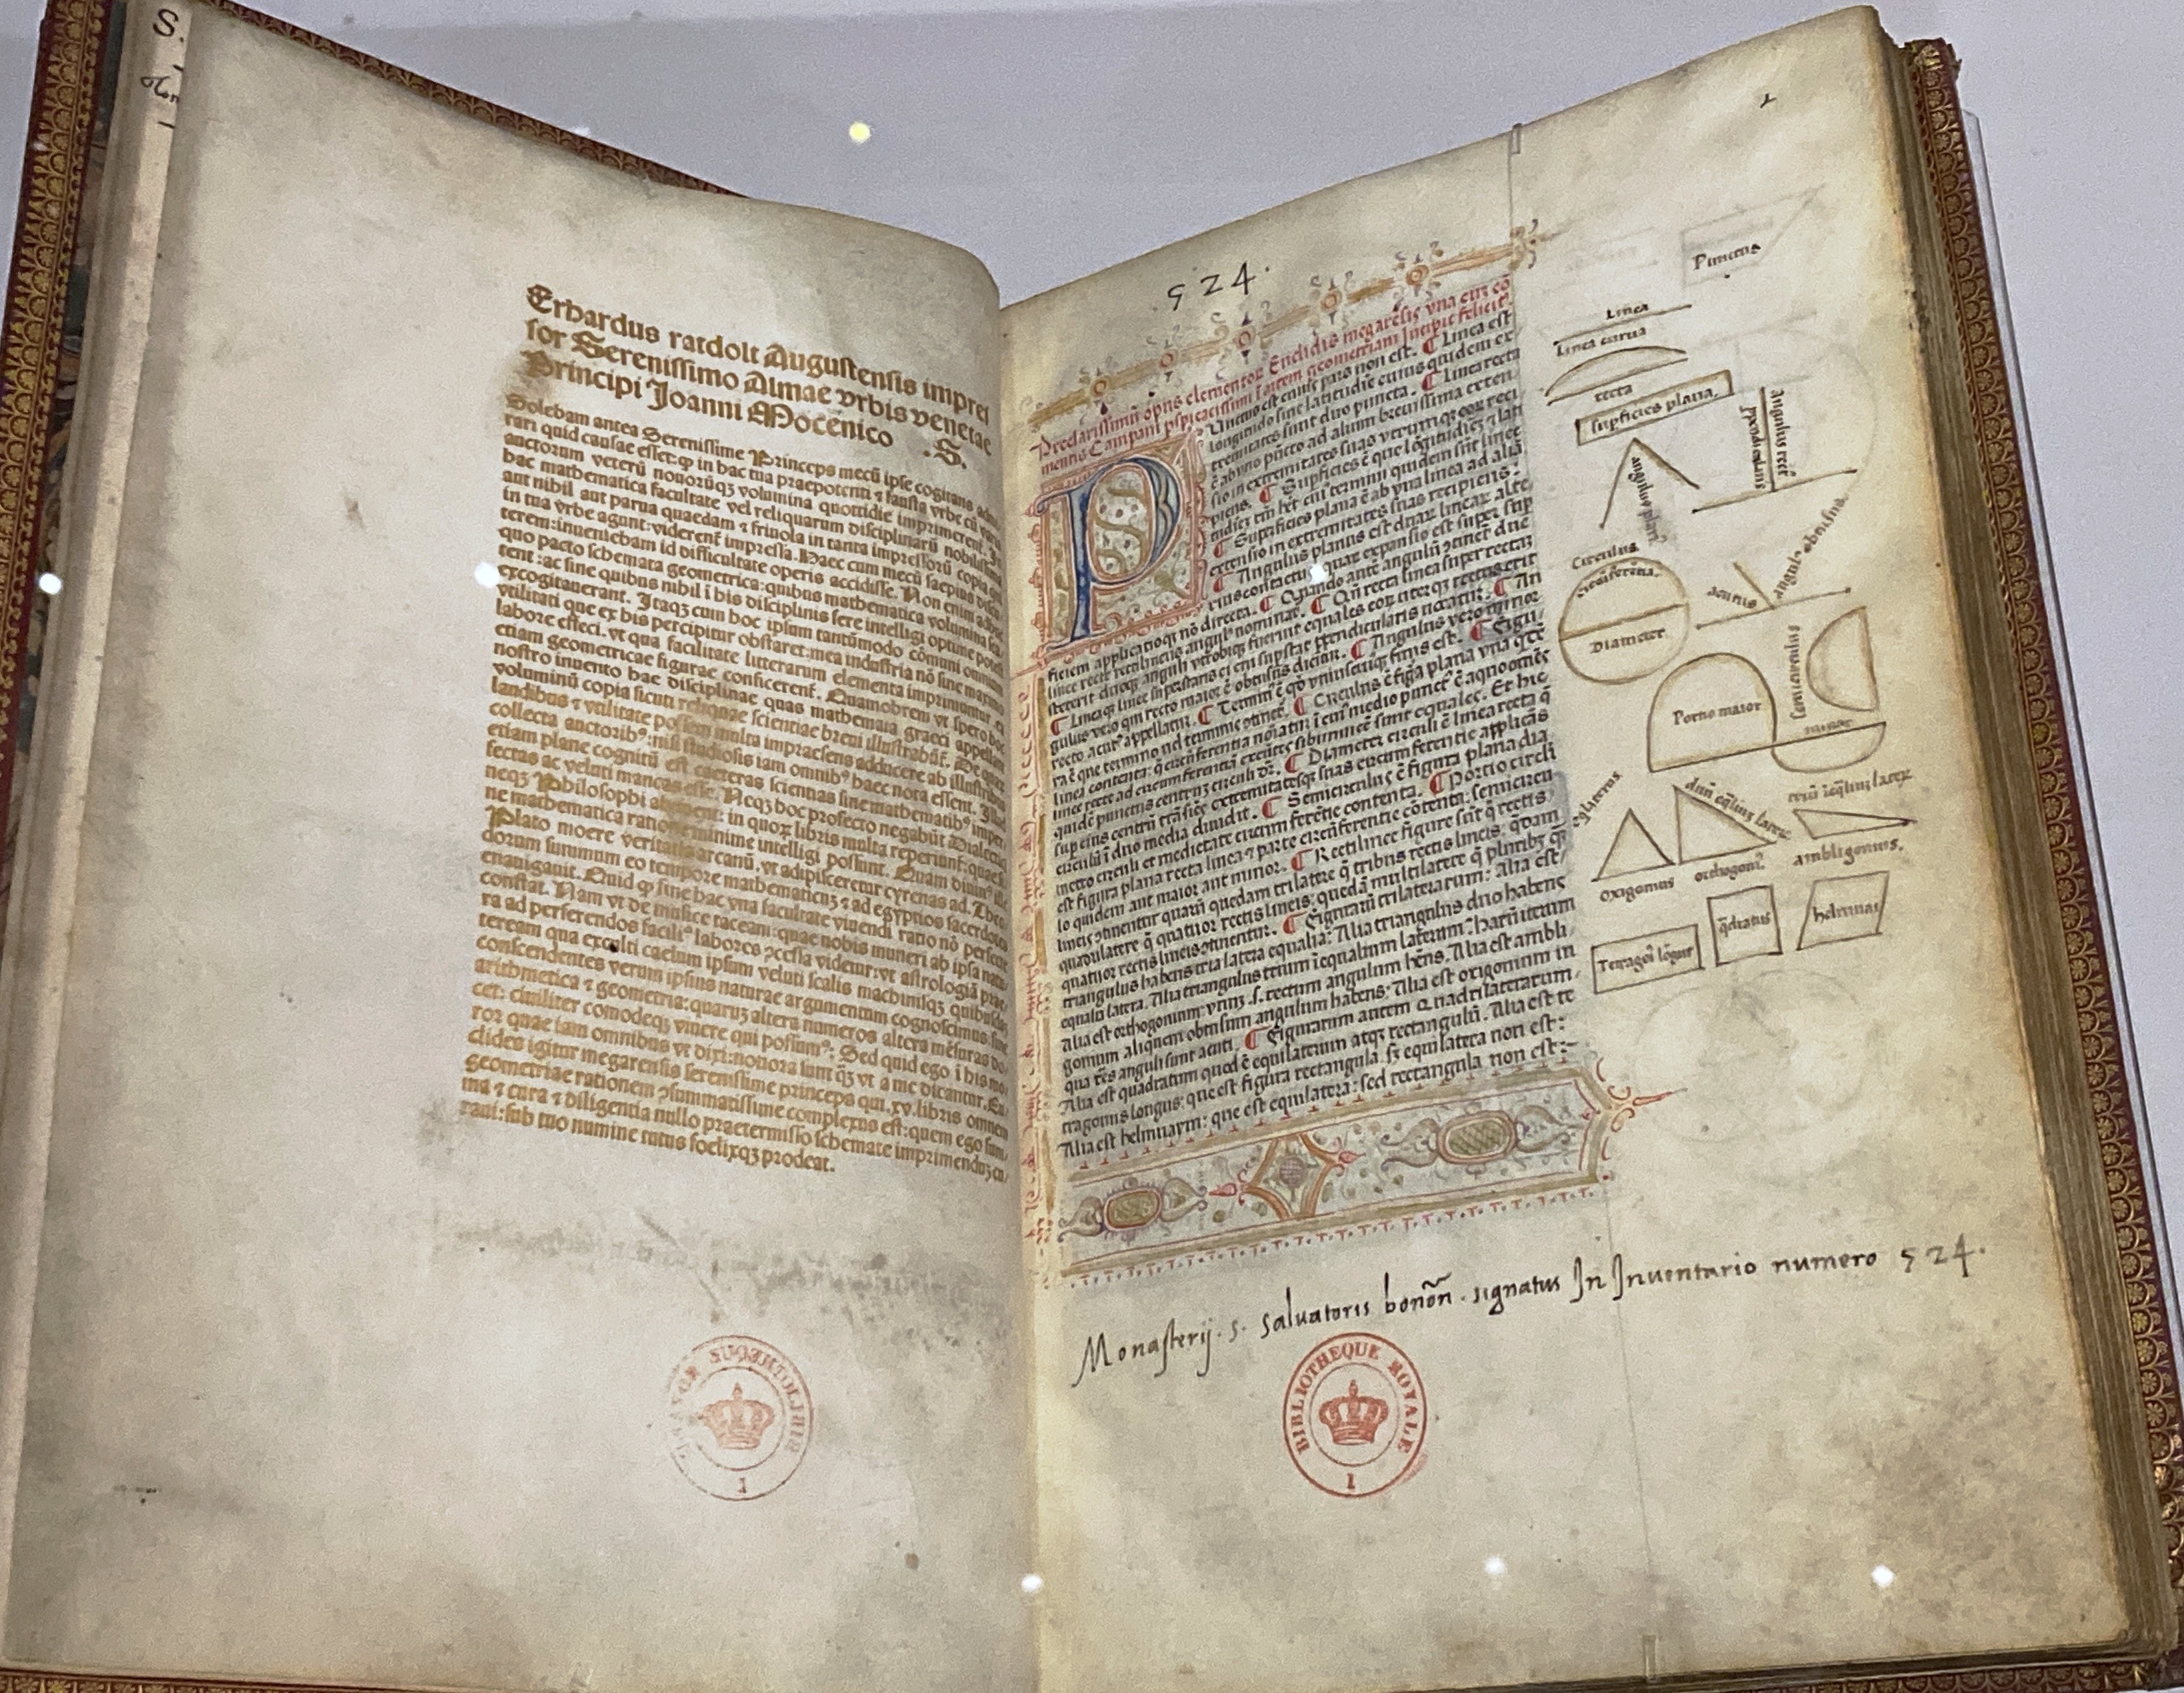 S.
Erhardus ratdolt Augustensis impres
sor Serenissimo Almae vrbis venetae
Principi Joanni Mocenico .S.
Solebam antea Serenissime Princeps mecū ipse cogitans
rari quid causae esset: ꝙ in hac tua praepotenti ⁊ fausta vrbe cū varia
auctorum veterū nouorūqꝫ volumina quottidie imprimerent. In
hac mathematica facultate vel reliquarum disciplinarū nobilissima
aut nihil aut parua quaedam ⁊ friuola in tanta impressorū copia qui
in tua vrbe agunt: viderent impressa. Haec cum mecū saepius
terem: inueniebam id difficultate operis accidisse. Non enim adhuc
quo pacto schemata geometrica: quibus mathematica volumina
tent: ac sine quibus nihil ī his disciplinis fere intelligi optime
excogitauerant. Itaqꝫ cum hoc ipsum tantūmodo cōmuni omnium
vtilitati que ex his percipitur obstaret: mea industria nō sine maximo
labore effeci. vt qua facilitate litterarum elementa imprimuntur. ea
etiam geometricae figurae conficerent. Quamobrem vt spero hoc
nostro inuento hae disciplinae quas mathemata graeci appellant
voluminū copia sicuti reliquae scientiae breui illustrabūt. De quarū
laudibus ⁊ vtilitate possem multa impraesens adducere ab illustribus
collecta auctoribꝰ: nisi studiosis iam omnibꝰ haec nota essent. Illud
etiam plane cognitū est caeteras scientias sine mathematibꝰ imper
fectas ac veluti mancas esse. Neqꝫ hoc profecto negabūt Dialectici
neqꝫ Philosophi abnuent: in quorꝫ libris multa reperiunt: quae si
ne mathematica ratione minime intelligi possunt. Quam diuinꝰ ille
Plato moere veritatis arcanū. vt adipisceretur cyrenas ad. Theo
dorum summum eo tempore mathematicuꝫ ⁊ ad egyptios sacerdotes
enauigauit. Quid ꝙ sine hac vna facultate viuendi ratio nō perfecte
constat. Nam vt de musice taceam: quae nobis muneri ab ipsa natu
ra ad perferendos faciliꝰ labores ꝯcessa videtur: vt astrologiā prae
teream qua exculti caelum ipsum veluti scalis machinisqꝫ quibusdam
conscendentes verum ipsius naturae argumentum cognoscimus: sine
arithmetica ⁊ geometria: quaruꝫ altera numeros altera mēsuras do
cet: ciuiliter comodeqꝫ viuere qui possumꝰ: Sed quid ego ī his mo
ror quae iam omnibus vt dixi: notiora sunt ꝗꝫ vt a me dicantur. Eu
clides igitur megarensis serenissime princeps qui. xv. libris omnem
geometriae rationem ꝯsummatissime complexus est: quem ego sum
ma ⁊ cura ⁊ diligentia nullo praetermisso schemate imprimenduꝫ cu
raui: sub tuo numine tutus foelixqꝫ prodeat.
1
524.
Preclarissimū opus elementoꝝ Euclidis megarēsis vna cuꝫ cō
mentis Campani pspicacissimi in artem geometriam Incipit felicitꝰ
Punctus est cuius pars non est. Linea est
longitudo sine latitudie cuius quidem ex
tremitates sunt duo puncta. Linea recta
ē ab vno pūcto ad alium breuissima exten
sio in extremitates suas vtrumqꝫ eoꝝ reci
piens. Supficies ē que lōgitudiēꝫ ⁊ lati
tudieꝫ tm̄ hꝫ: cui termini quidem sūt linee
Supficies plana ē ab vna linea ad aliā
extensio in extremitates suas recipiens.
Angulus planus est duaꝝ linearꝫ alte
rius contactus: quaꝝ expansio est super sup
ficiem applicatioqꝫ nō directa. Quando antē angulū ꝯtinēt due
linee recte rectilineus angulꝰ nominaꝰ. Qn̄ recta linea super rectaꝫ
steterit duoqꝫ anguli vtrobiqꝫ fuerint equales eoꝝ vterqꝫ rectus erit
Lineaqꝫ linee superstans ei cui supstat ppendicularis vocatur. An
gulus vero qui recto maior ē obtusus dicitur. Angulus vero minor
recto acutꝰ appellatur. Terminꝰ ē qd̄ vniuscuiusqꝫ finis est. Figu
ra ē que termino vel terminis ꝯtinet. Circulus ē figura plana vna qdē
linea contenta: q̄ circūferentia noīatur: ī cuiꝰ medio punctꝰ ē a quo omēs
linee recte ad circumferentiā exeūtes sibi inuicē sunt equales. Et hic
quidē punctus centrū circuli dr̄. Diameter circuli ē linea recta q̄
super eius centrū trāsiēs extremitatesqꝫ suas circumferentie applicās
circulū ī duo media diuidit. Semicirculus ē figura plana dia
metro circuli et medietate circumferētie contenta. Portio circuli
est figura plana recta linea ⁊ parte circūferentie cōtenta: semicircu
lo quidem aut maior aut minor. Rectilinee figure sūt q̄ rectis
lineis ꝯtinentur quarū quedam trilatere q̄ tribus rectis lineis: q̄dam
quadrilatere q̄ quatuor rectis lineis: quedā multilatere q̄ pluribꝫ qꝫ
quatuor rectis lineis ꝯtinentur. Figurarū trilaterarum: Alia est
triangulus habens tria latera equalia: Alia triangulus duo habens
equalia latera. Alia triangulus trium īequalium laterum: harū iterum
Alia est orthogonium: vnum .s. rectum angulum habens. Alia est ambli
gonium aliquem obtusum angulum habens. Alia est oxigonium in
qua tres anguli sunt acuti. Figurarum autem quadrilaterarum.
Alia est quadratum quod ē equilaterum atqꝫ rectangulū. Alia est te
tragonus longus: que est figura rectangula. sꝫ equilatera non est:
Alia est helmuaym: que est equilatera: sed rectangula non est:
Punctus
Linea
Linea curua
recta
supficies plana.
angulus planꝰ
angulus rectꝰ
ppendicularis
angulꝰ obtusus
acutus
Circulus
circūferētia.
Diameter
Portio maior
Semicirculus
minor
eq̄laterus
duū eq̄liuꝫ laterꝝ
triū īeq̄liuꝫ laterꝝ
oxigonius
orthogonꝰ
ambligonius.
Tetragonꝰ lōgus
q̄dratus
helmuai
Monasterij. s. salvatoris bonōn. signatus In Inventario numero 524.
BIBLIOTHEQUE ROYALE
1